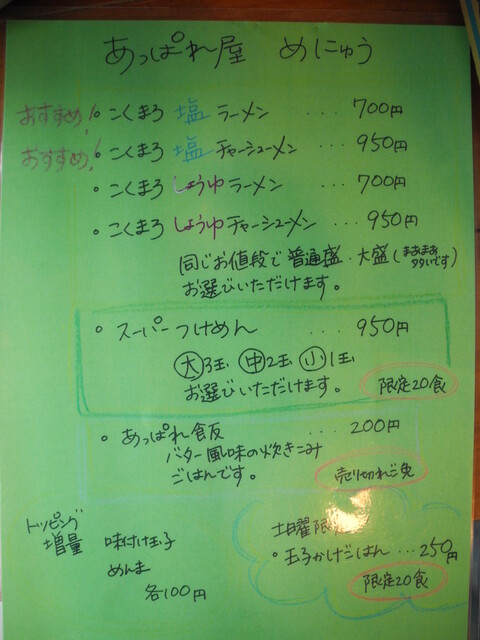 あっぱれ屋 めにゅう
おすすめ! ・こくまろ 塩 ラーメン ... 700円
おすすめ! ・こくまろ 塩 チャーシューメン ... 950円
・こくまろ しょうゆ ラーメン ... 700円
・こくまろ しょうゆ チャーシューメン ... 950円
同じお値段で普通盛・大盛(まあまあ
タタいです)
お選びいただけます。
・スーパーつけめん ... 950円
大3玉 中2玉 小1玉
お選びいただけます。 限定20食
・あっぱれ飯 ... 200円
バター風味の炊きこみ
ごはんです。 売り切れご免
トッピング
増量 味付け玉子
めんま
各100円
土日曜限
・玉子かけごはん ... 250円
限定20食